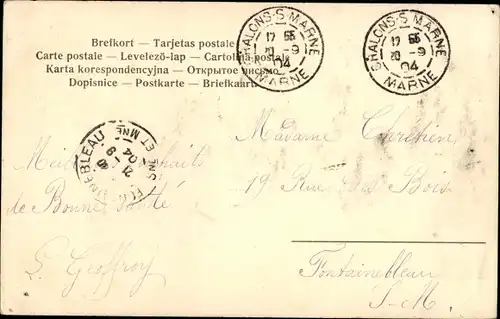 Brefkort — Tarjetas postale
Carte postale — Levelező-lap — Cartolina postale
Karta korespondencyjna — Открытое письмо
Dopisnice — Postkarte — Briefkaart
CHALONS-S-MARNE
17 55
20 -9
04
MARNE
CHALONS-S-MARNE
17 55
20 -9
04
MARNE
FONTAINEBLEAU
21 -9
04
SNE ET MNE
Meilleurs souhaits
de Bonne santé
L. Geoffroy
Madame Chrétien
19 Rue des Bois
Fontainebleau
S-M.